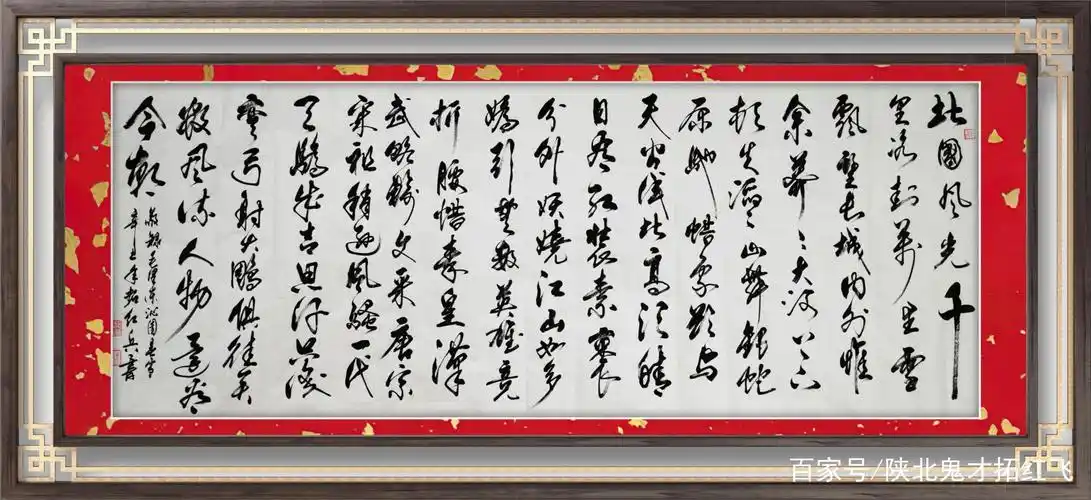 北國風光千
里冰封萬里雪
飄望长城内外惟
余莽々大河上下
顿失滔々山舞銀蛇
原馳蜡象欲与
天公试比高须晴
日看红装素裹
分外妖嬈江山如多
嬌引無数英雄竞
折腰惜秦皇漢
武略輸文采唐宗
宋祖稍逊風騷一代
天驕成吉思汗只識
彎弓射大鵰俱往矣
数風流人物還看
今朝
敬録毛澤東沁園春雪
辛丑年拓红兵書
百家号/陕北鬼才拓红飞